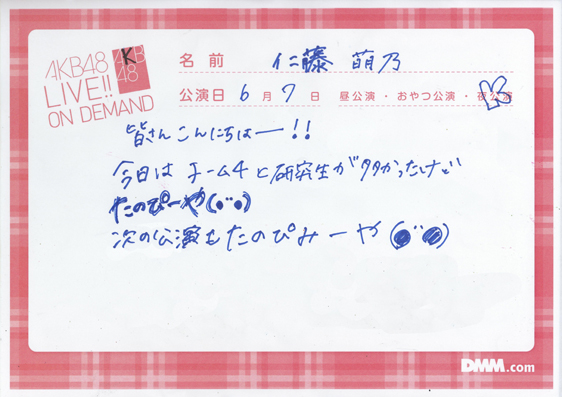 AKB48
LIVE!!
ON DEMAND
AKB
48
名前 仁藤 萌乃
公演日 6月7日 昼公演・おやつ公演・夜公演
皆さんこんにちはー!!
今日はチーム4と研究生が多かったけど
たのぴーや(•¨•)
次の公演もたのぴみーや(●¨●)
DMM.com